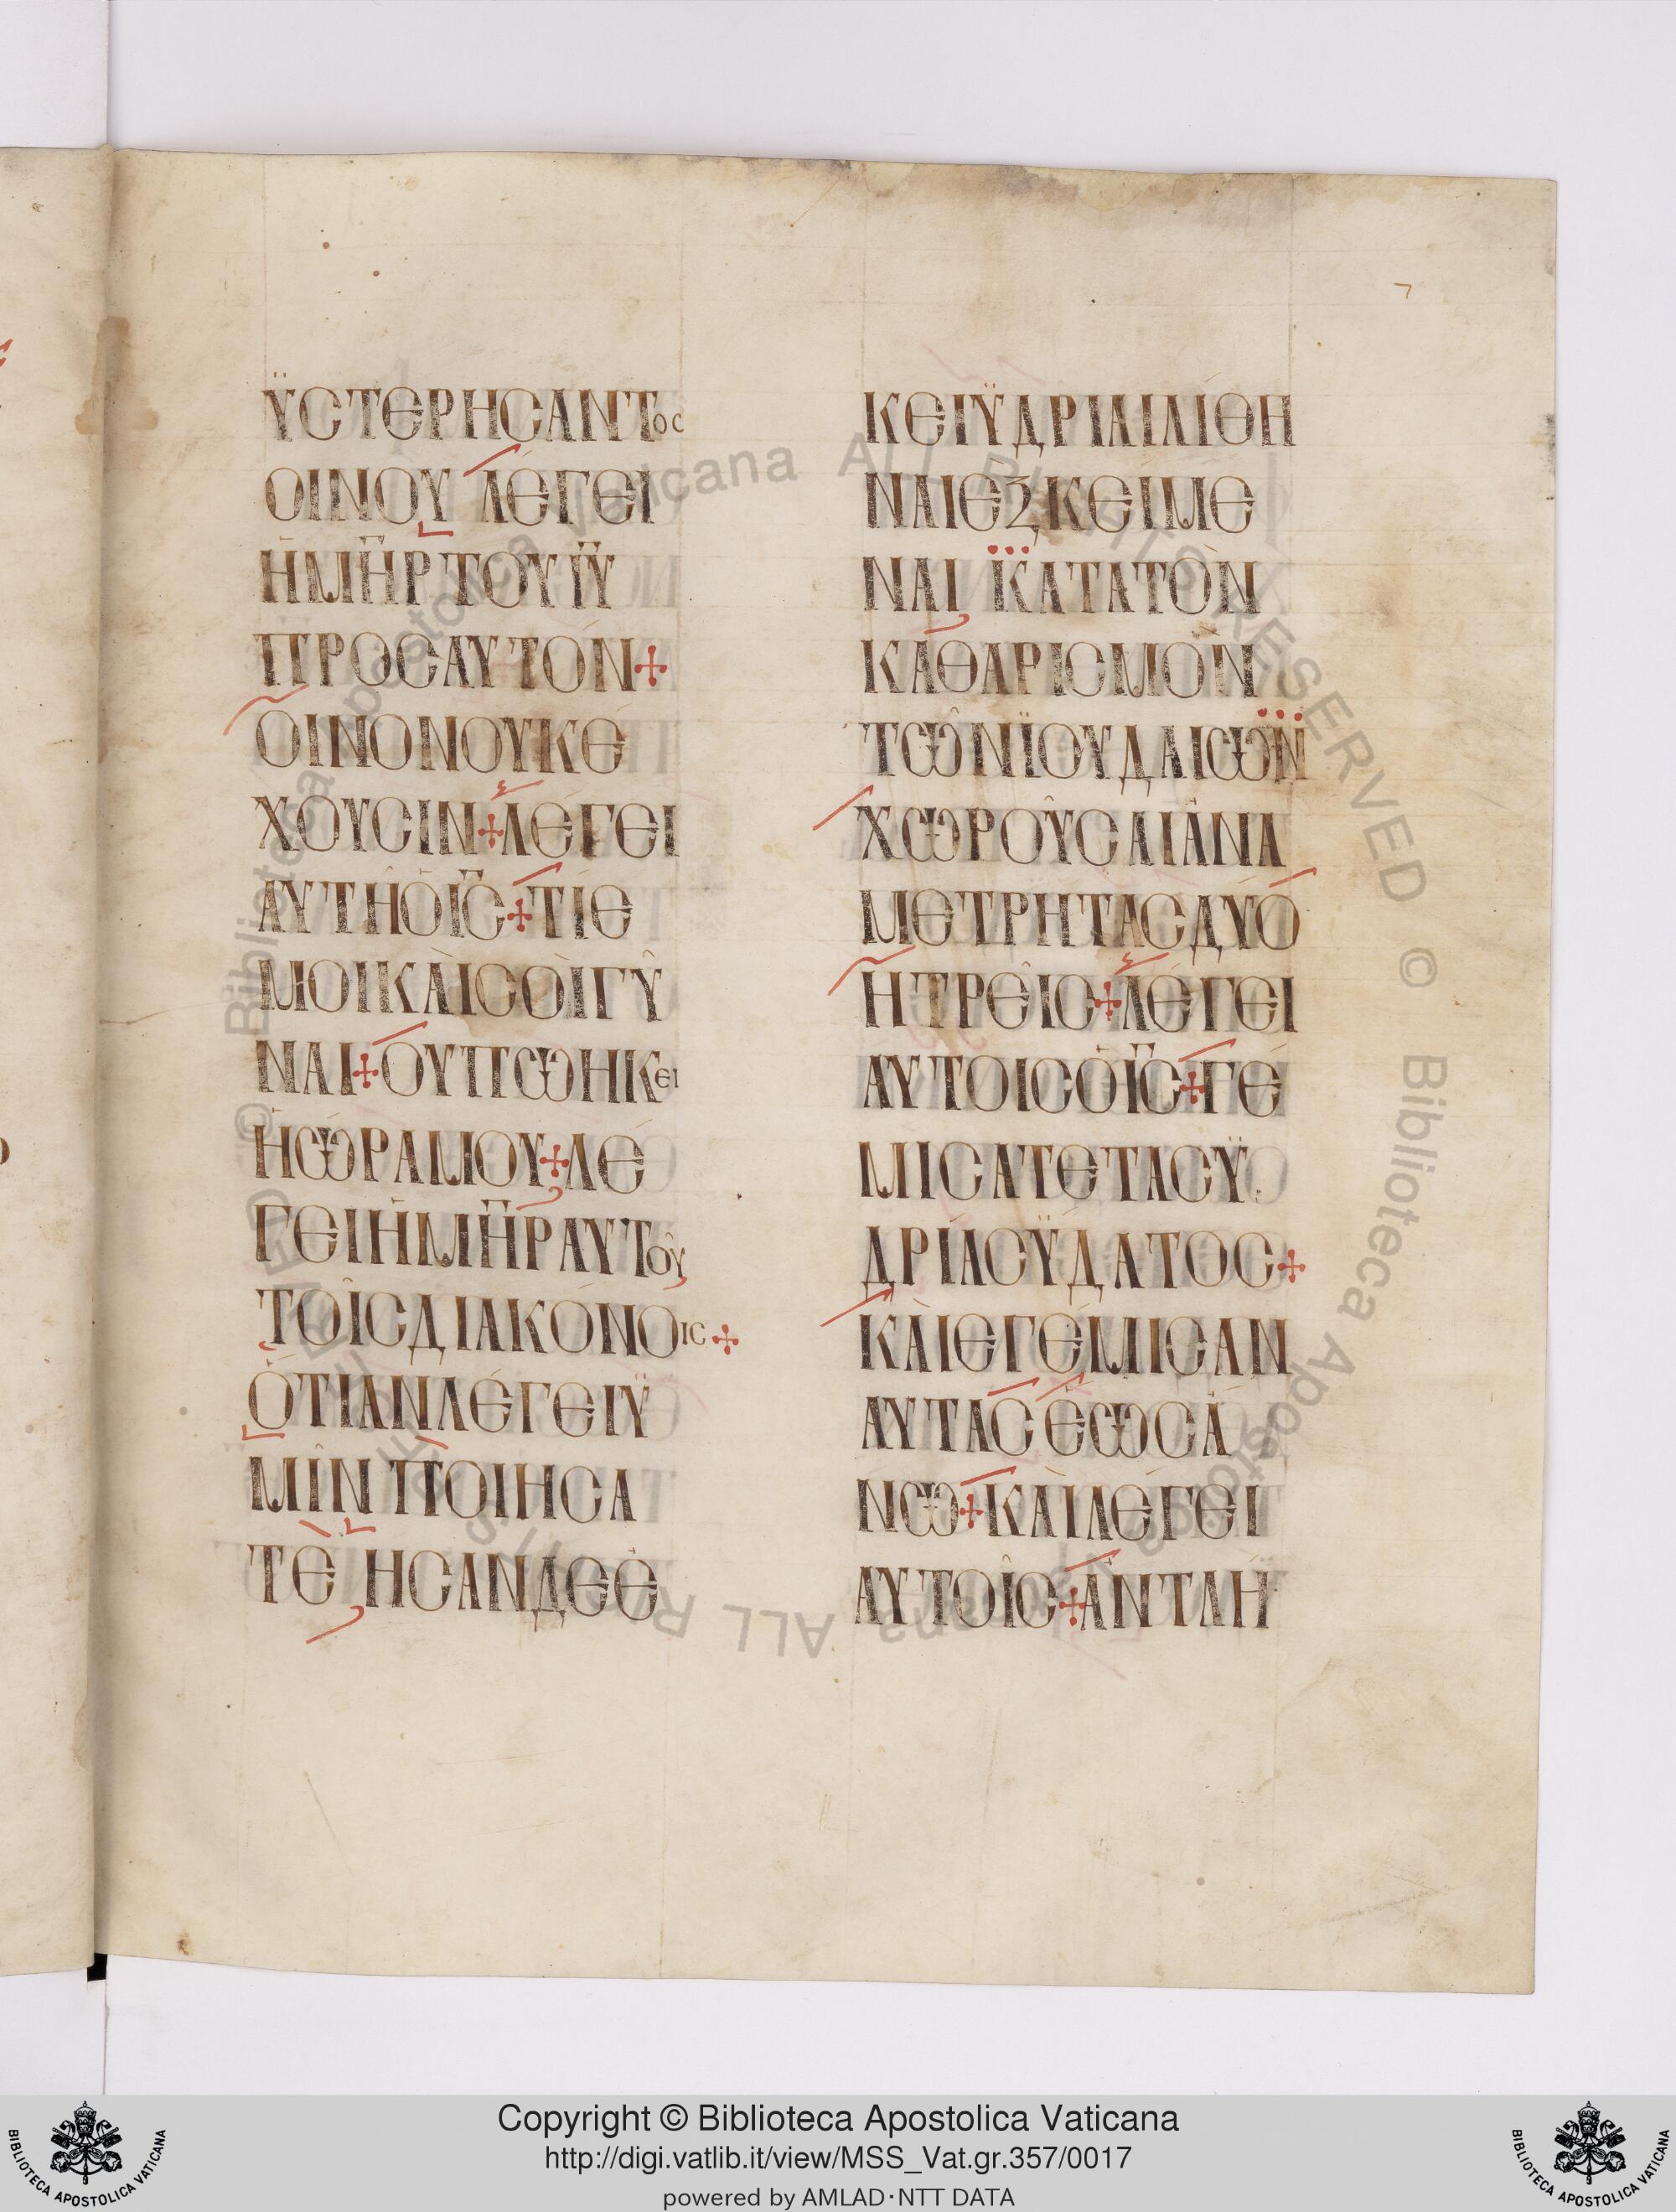 ΫϹΤΕΡΗϹΑΝΤΟϹ
ΟΙΝΟΥ ΛΕΓΕΙ
ἩΜΗ̅Ρ ΤΟΥ ΙΥ̅
ΠΡΟϹΑΥΤΌΝ+
ΟΙΝΟΝΟΥΚΕ
ΧΟΥϹΙΝ+ΛΕΓΕΙ
ΑΥΤΗ͂ὉΙϹ̅+ΤΊΕ
ΜΟΙΚΑῚϹΟῚΓΎ
ΝΑΙ+ΟΥΠΩΗΚΕΙ
ἩΩΡΑΜΟΥ+ΛΕ
ΓΕΙἩΜΗ̅ΡΑΥΤΟΥ͂
ΤΟΙ͂ϹΔΙΑΚΌΝΟΙϹ+
ὍΤΙΑΝΛΈΓΕΙΫ
ΜΙ͂Ν ΠΟΙΗϹΑ
ΤΕ ΗϹΑΝΔΕΕ
ΚΕΙΫΔΡΙΑΙΛΙΘΗ
ΝΑΙΕΞΚΕΙΜΕ
ΝΑΙ ΚΑΤΑΤΟΝ
ΚΑΘΑΡΙϹΜΟΝ
ΤΩ͂ΝΪΟΥΔΑΙΩΝ
ΧΩΡΟΥ͂ϹΑΙἈΝΑ
ΜΕΤΡΗΤΑϹΔΥΟ
ΗΤΡΕΙ͂Ϲ+ΛΕΓΕΙ
ΑΥΤΟΙϹὉΙϹ̅+ΓΕ
ΜΙϹΑΤΕΤΑϹΫ
ΔΡΊΑϹΫΔΑΤΟϹ+
ΚΑῚΕΓΈΜΙϹΑΝ
ΑΥΤΑϹ ἘΩϹἈ
ΝΩ+ΚΑῚΛΕΓΕΙ
ΑΥΤΟΙ͂Ϲ+ἈΝΤΛΗ
© Biblioteca Apostolica Vaticana ALL RIGHTS RESERVED
Copyright © Biblioteca Apostolica Vaticana
http://digi.vatlib.it/view/MSS_Vat.gr.357/0017
powered by AMLAD·NTT DATA
BIBLIOTECA APOSTOLICA VATICANA
BIBLIOTECA APOSTOLICA VATICANA